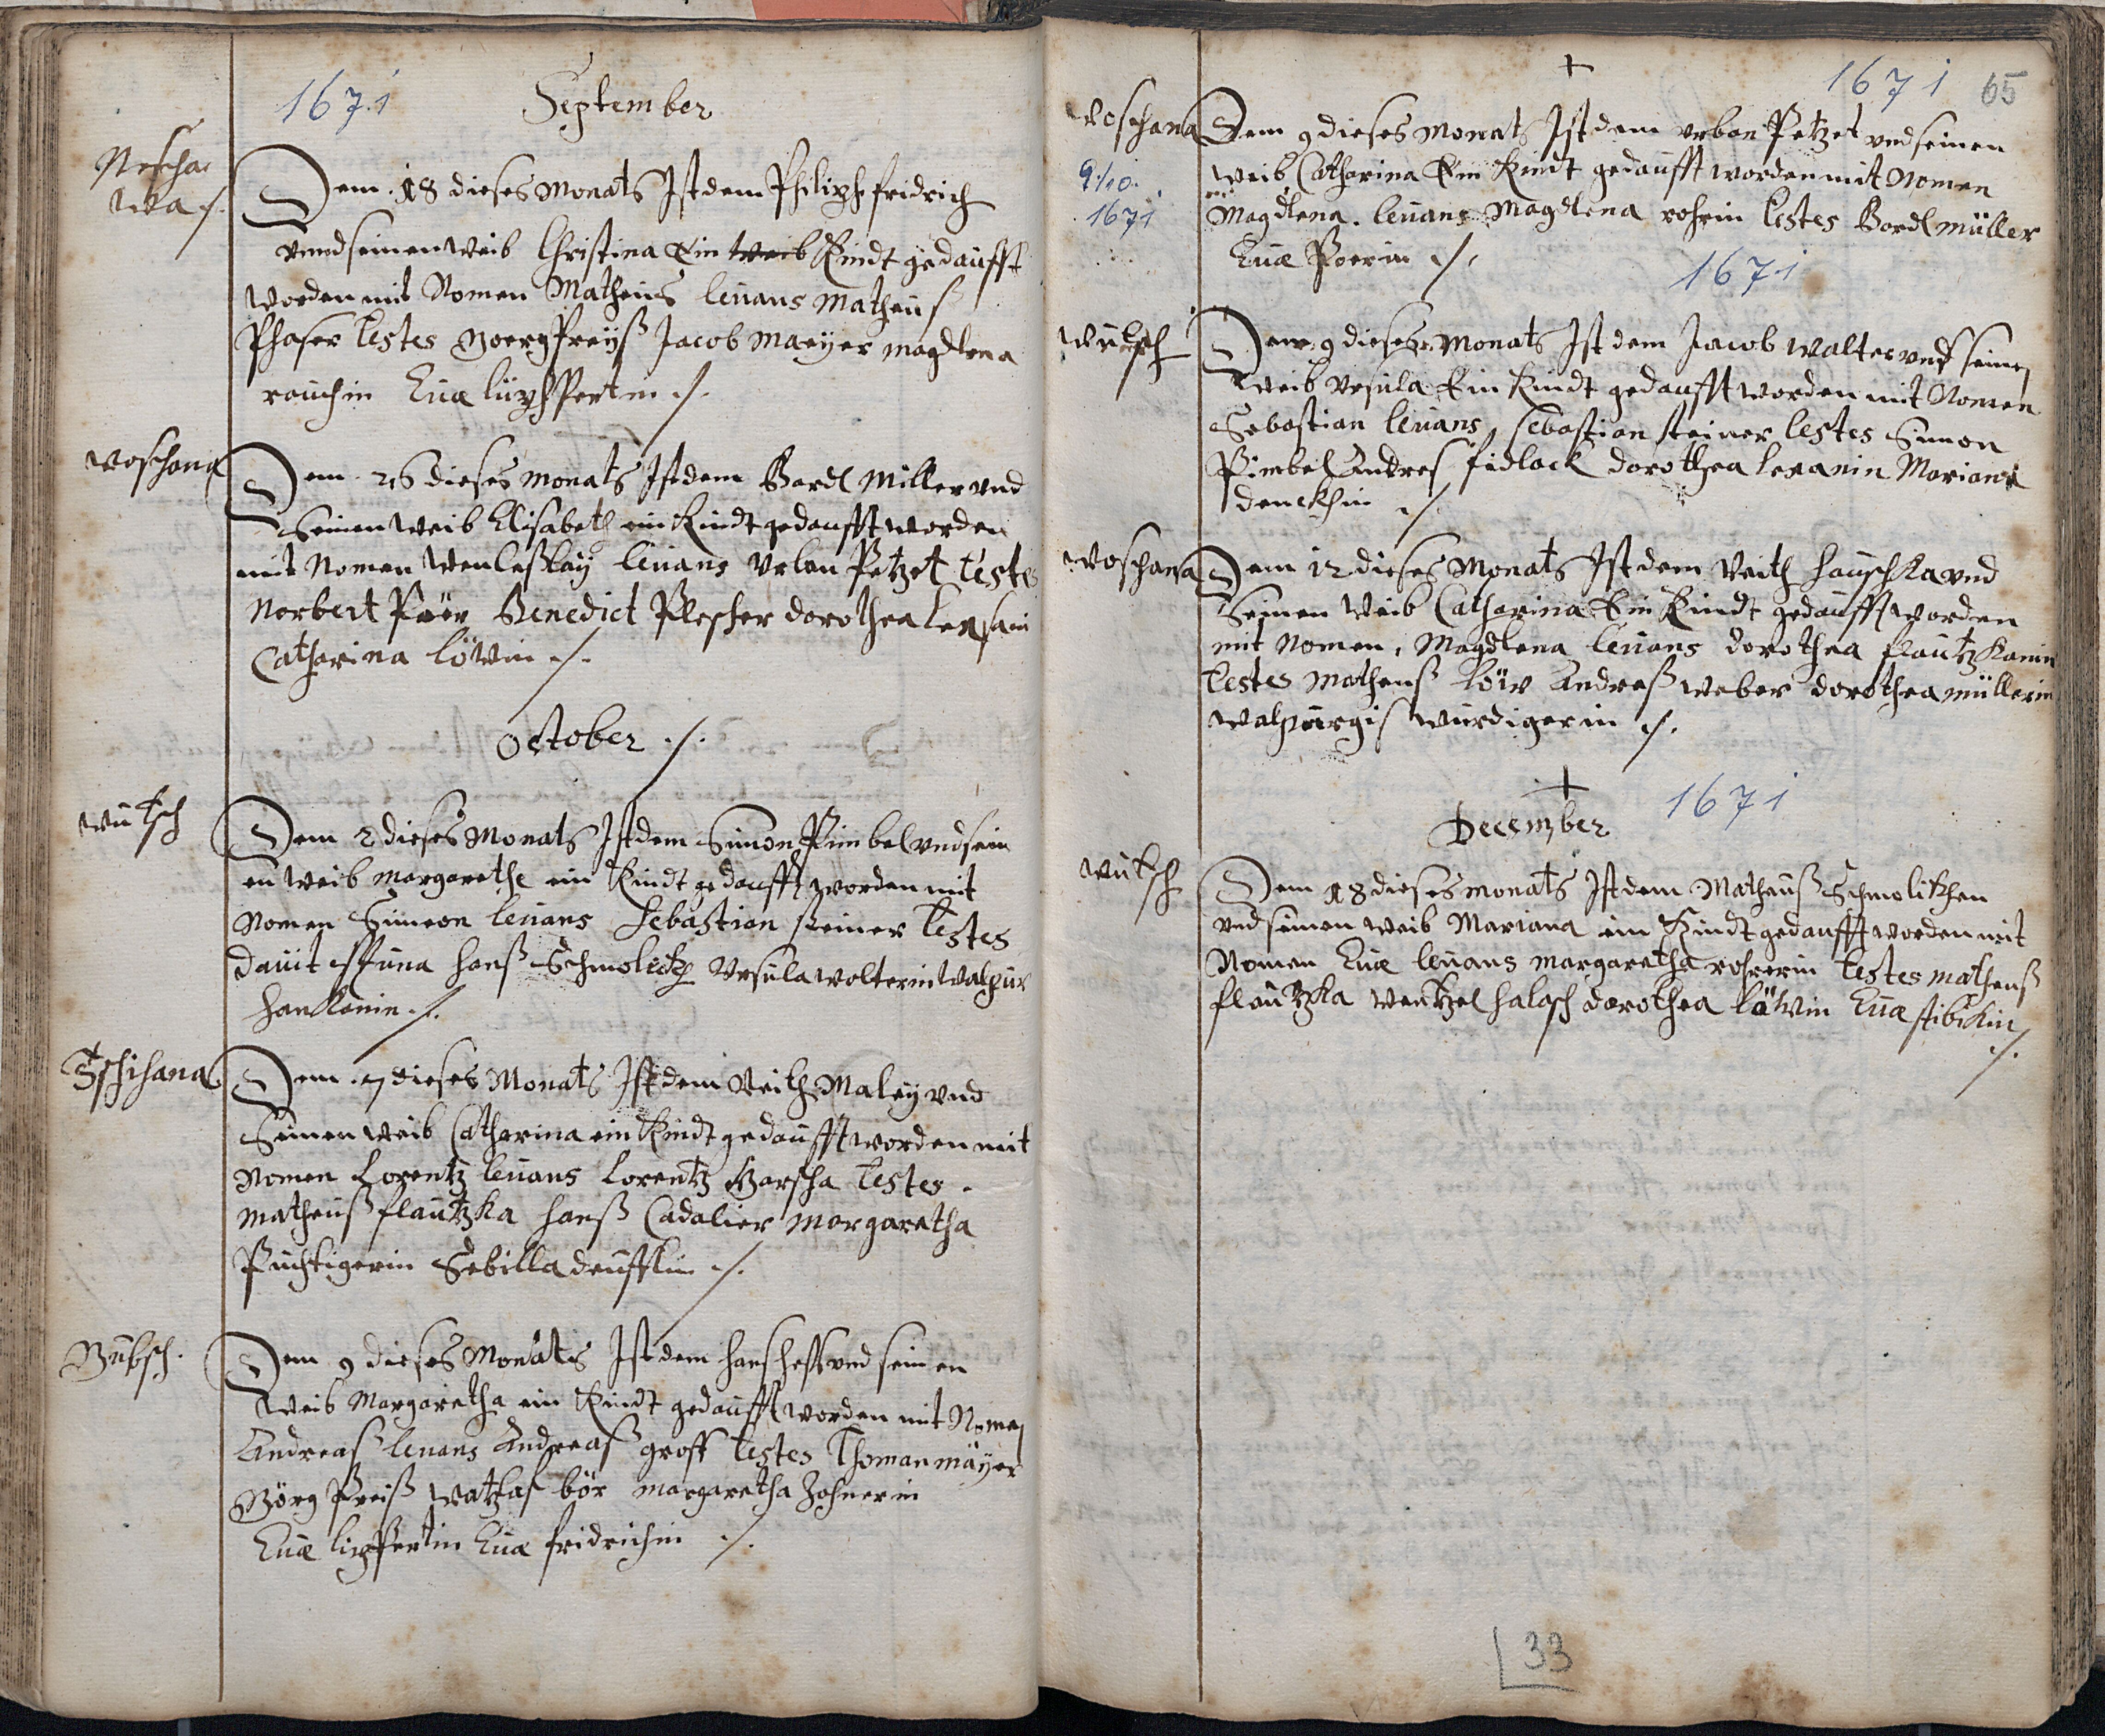 1671 September
Nescha
wa ./.
Dem 18 dieses Monats Ist dem Philiph fridrich
vnnd seinen Weib Christina Ein Weib Kindt gedaufft
worden mit Nomen Matheus leuans Matheus
Phaser testes Joerg Preÿß Jacob Maeÿer Magdlena
rauchin Eua lüphfertin ./.
Woschana
Dem 26 dieses Monats Ist dem Bardl Miller vnd
Seinen Weib Elisabeth ein Kindt gedaufft worden
mit Nomen Wenleßlaÿ leuans Urban Petzet testes
Norbert Poër Benedict Plescher dorothea
Catharina löwin ./.
October ./.
Wutsch
Dem 2 dieses Monats Ist dem Simon Pimbel vnd sein
en Weib Margarethe ein Kindt gedaufft worden mit
Nomen Simeon leuans Sebastian steiner testes
Dauit hanß Schmolickh Ursula Wolterin Walpur
hankanin ./.
Tschihana
Dem 7 dieses Monats Ist dem Veith Maleÿ vnd
Seinen Weib Catharina ein Kindt gedaufft worden mit
Nomen Lorentz leuans Lorentz Harscha testes
Matheuß flautzka hanß Cadalier Margaretha
Puchtigerin Sebilla deufflin ./.
Gübsch
Dem 9 dieses Monats Ist dem vnd seinen
Weib Margaretha ein Kindt gedaufft worden mit Nomen
Andreaß leuans Andreaß groff testes Thoman maÿer
Jörg Preiß Watzlaf bör Margaretha Zohnerin
Eua lipfertin Eua fridrichin ./.
1671 65
Woschana
9./10.
1671
Dem 9 dieses Monats Ist dem Urban Petzet vnd seinen
Weib Catharina Ein Kindt gedaufft worden mit Nomen
Magdlena. leuans Magdlena rohrin testes Bardl müller
Eua Poerin ./.
1671
Wutsch
Dem 9 dieses Monats Ist dem Jacob Walter vnd seinen
Weib Ursula Ein Kindt gedaufft worden mit Nomen
Sebastian leuans Sebastian steiner testes Simon
Pimbel Andres fidlack dorothea Mariana
denckhin ./.
Woschana
Dem 12 dieses Monats Ist dem Veith Hauschka vnd
Seinen Weib Catharina Ein Kindt gedaufft worden
mit Nomen, Magdlena leuans dorothea flautzkanin
testes Matheuß löw Andreaß Weber dorothea müllerin
Walpurgis Wurdigerin ./.
1671
December
Wutsch
Dem 18 dieses monats Ist dem Matheuß Schmolikhen
vnd seinen Weib Mariana ein Kindt gedaufft worden mit
Nomen Eua leuans Margaretha rohrerin testes Matheuß
flautzka Wentzel halasch dorothea löwin Eua stibickin
./.
33